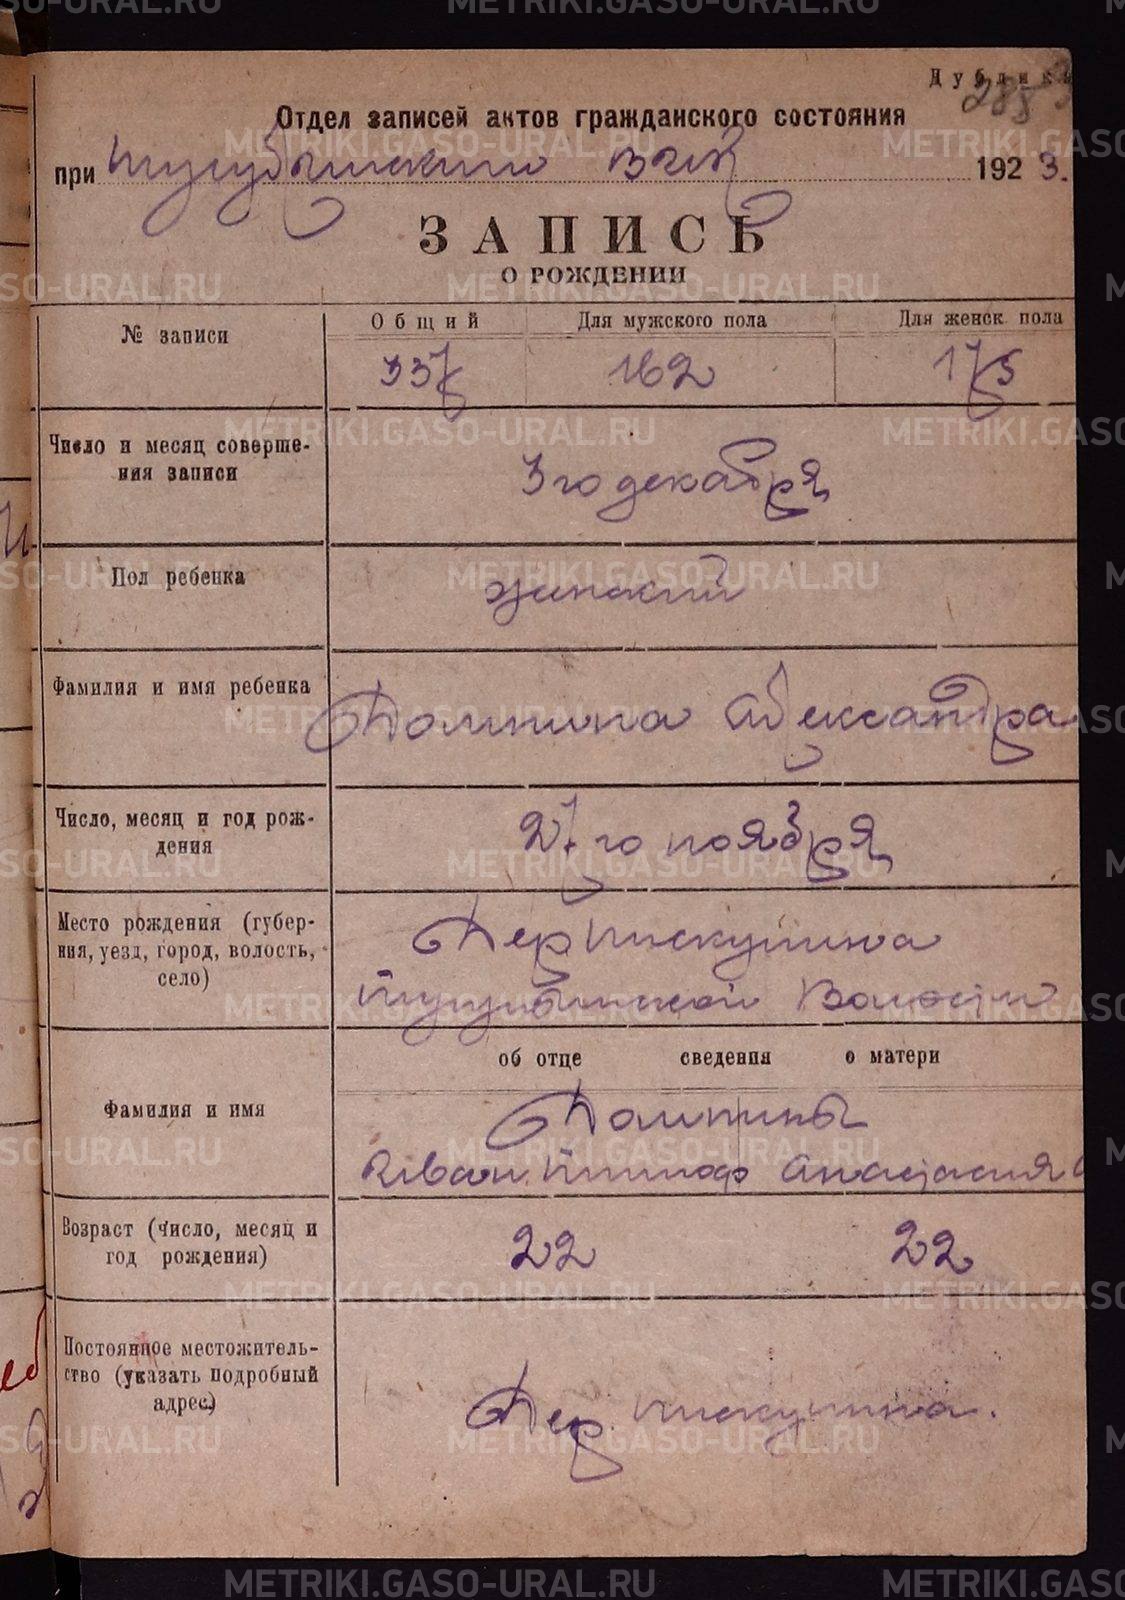 Дублик
285
Отдел записей актов гражданского состояния
при ВИК 1923.
ЗАПИСЬ
О РОЖДЕНИИ
№ записи Общий Для мужского пола Для женск. пола
337 162 175
Число и месяц соверше-
ния записи
3 го декабря
Пол ребенка женский
Фамилия и имя ребенка Александра
Число, месяц и год рож-
дения
27 го ноября
Место рождения (губер-
ния, уезд, город, волость,
село)
Дер Пискунина
Волости
об отце сведения о матери
Фамилия и имя
Иван Анастасия
Возраст (число, месяц и
год рождения)
22 22
Постоянное местожитель-
ство (указать подробный
адрес)
Дер. Пискунина.
METRIKI.GASO-URAL.RU